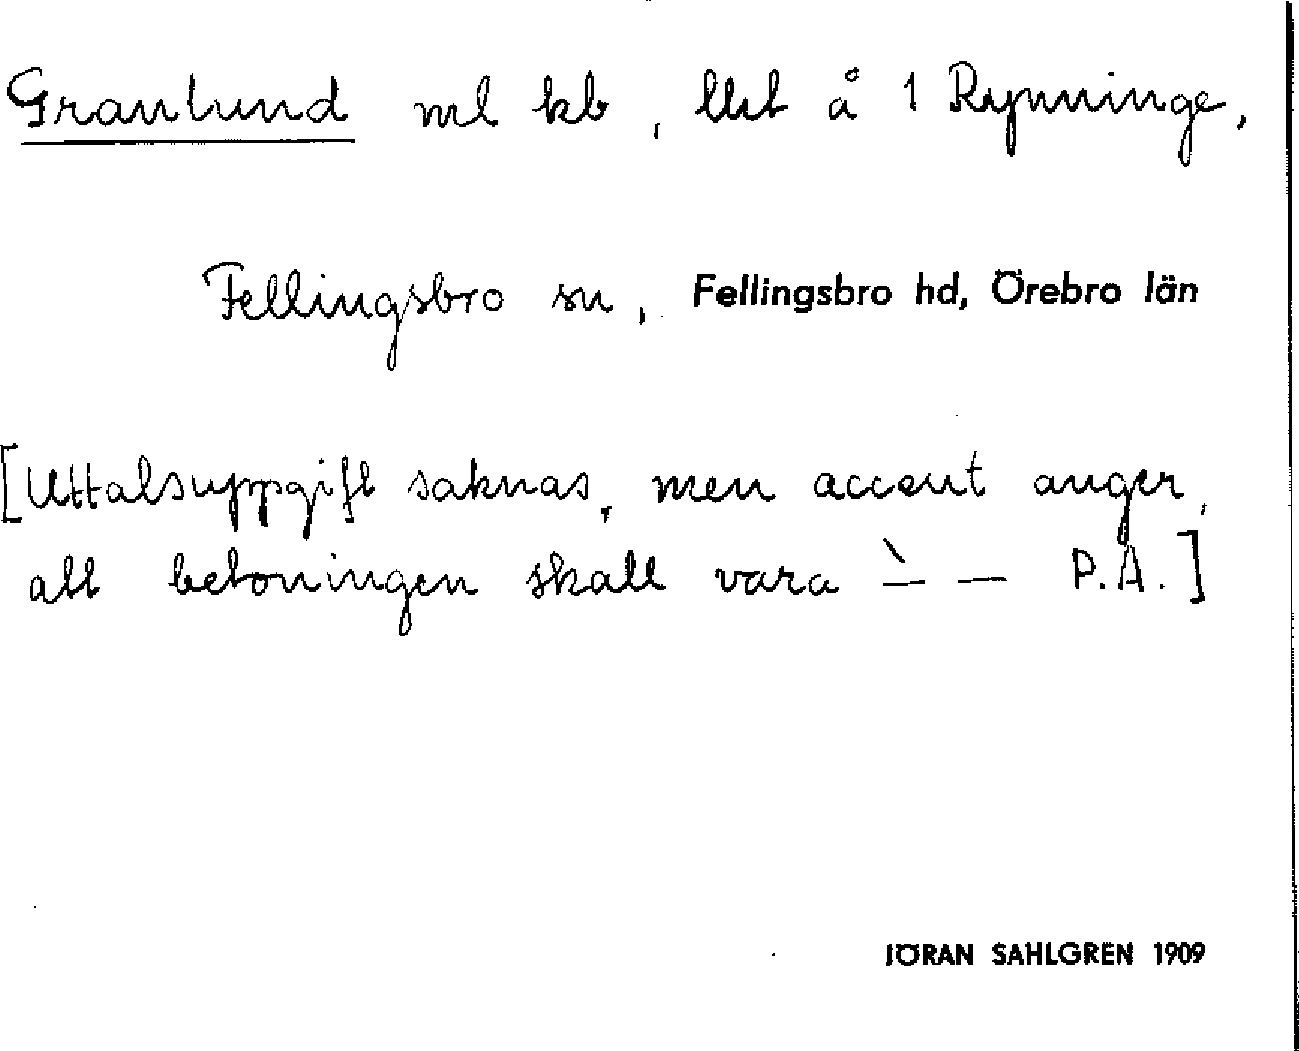 Granlund ml kb, llst å 1 Rynninge,
Fellingsbro sn, Fellingsbro hd, Örebro län
[Uttalsuppgift saknas, men accent anger,
att betoningen skall vara ` — — P.A.]
JÖRAN SAHLGREN 1909